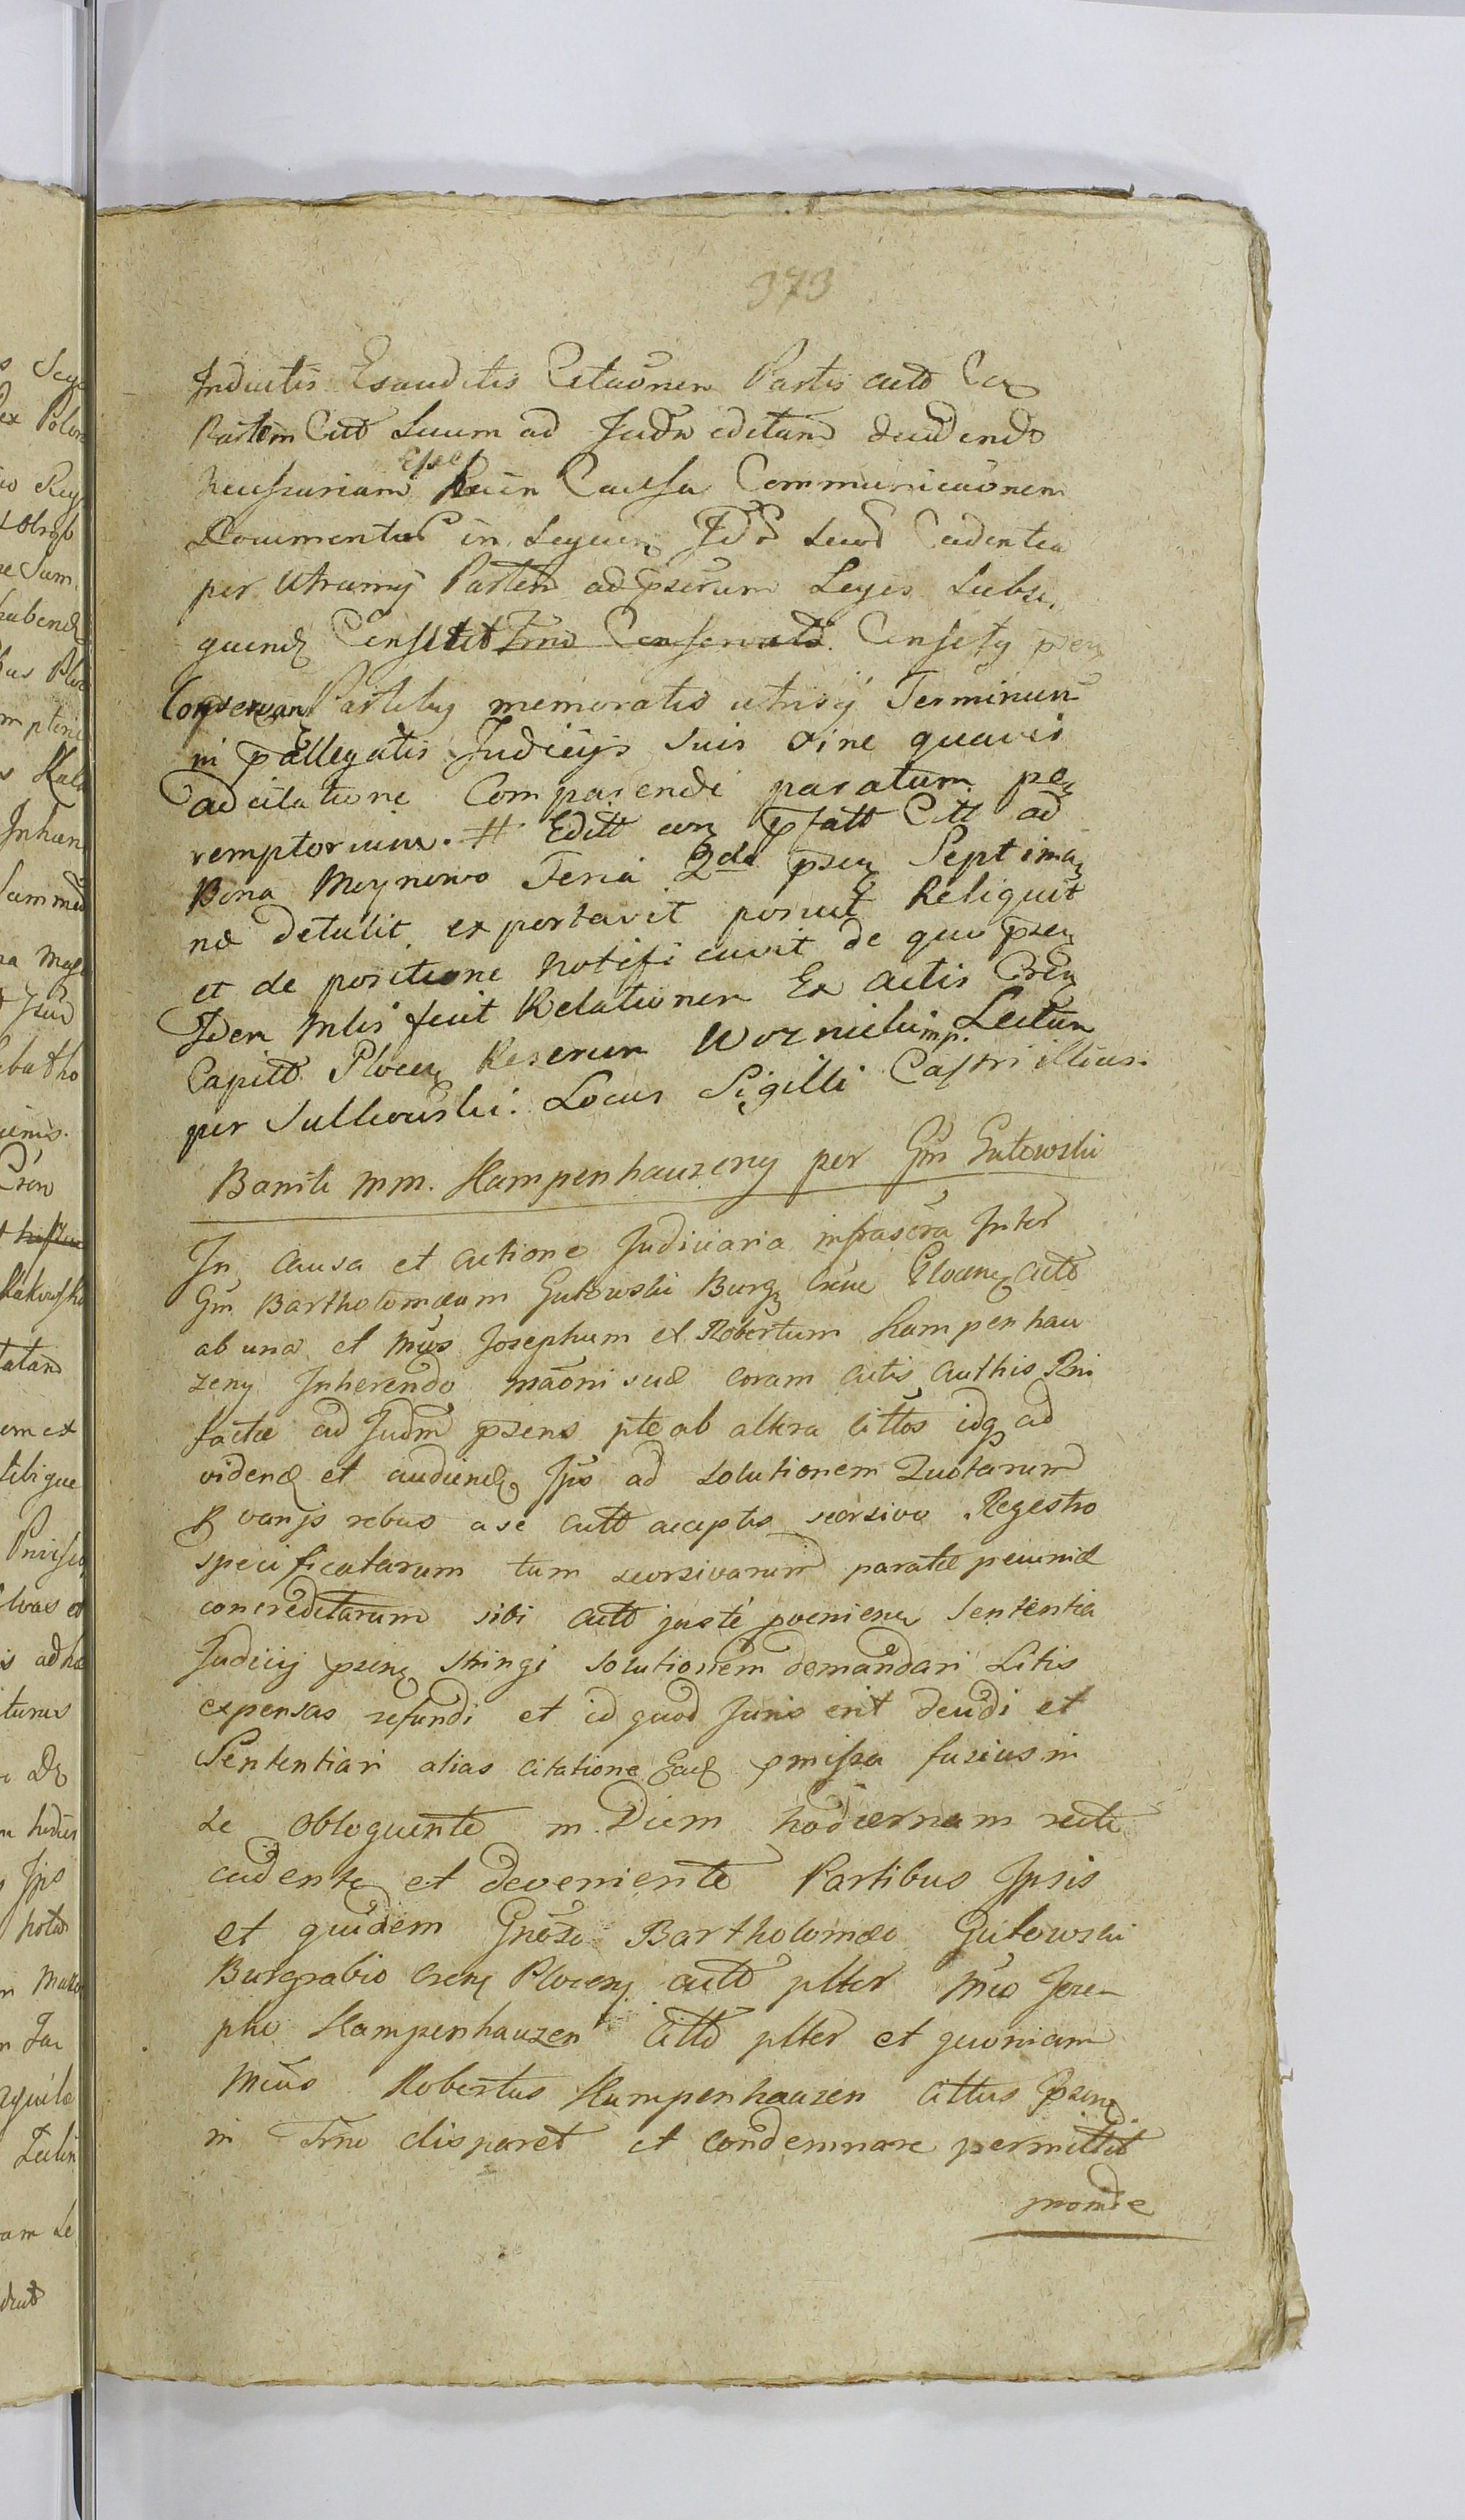 373
Inductis Exauditis Citaõnem Partis actð Cx
Partem Citð Suum ad Judm editam deudendo
Necessariam Esse hacin Caussa Communicaõnem
Documentor in Seyeur Jdð Seud Cadentea
per Utramq Partem ad pserum Leges Subse,
quend Censetit Trno Conservato. Censetq psen
Conservan Partibq memoratis utrisq Terminum
in pallegatis Judicijs suis sine quavis
adcitatione Comparendi paratum pe
remptorium. # Editt eorz pfatt Citt ad
Bona Moynowo Feria 2da psen Septima
næ detulit exportavit posuit Reliquit
et de positione notificavit de quo psen
Idem Mlis fecit Relationem Ex actis Cren
Capitt Plocen Reserum Woznicki mp. Lectum
per Sulkowski. Locus Sigilli Castri illius.
Baniti MM. Kampenhauzeny per Gm Gutowski
In causa et actione Judiciaria infrascra Inter
Gm Bartholomæum Gutowski Burg Cren Plocen actð
ab una et Mcos Josephum et Robertum Kampenhau
zeny Inherendo maõni suæ coram actis authis Rni
factæ ad Judm psens pte ab altera cittos idq ad
videnð et audienð Ipso ad solutionem Quotarum
p varijs rebus a se actð acceptis seorsivo Regestro
specificatarum tum seorsivarum paratæ pecuniæ
concreditarum sibi actð justé pvenien Sententia
Judicij psen stringi solutionem demandari Litis
expensas refundi et id quod Juris erit decidi et
Sententiari alias citatione Eaq pmissa fusius in
se obloquente in Diem hodiernam recte
cadente et deveniente Partibus Ipsis
et quidem Gnoso Bartholomæo Gutowski
Burgrabio Cren Plocen actð plter Mco Jose-
pho Kampenhauzen Cittð plter et quoniam
Mcus Robertus Kampenhauzen Cittus psen
in Trno disparet et condemnare permittit
proinde